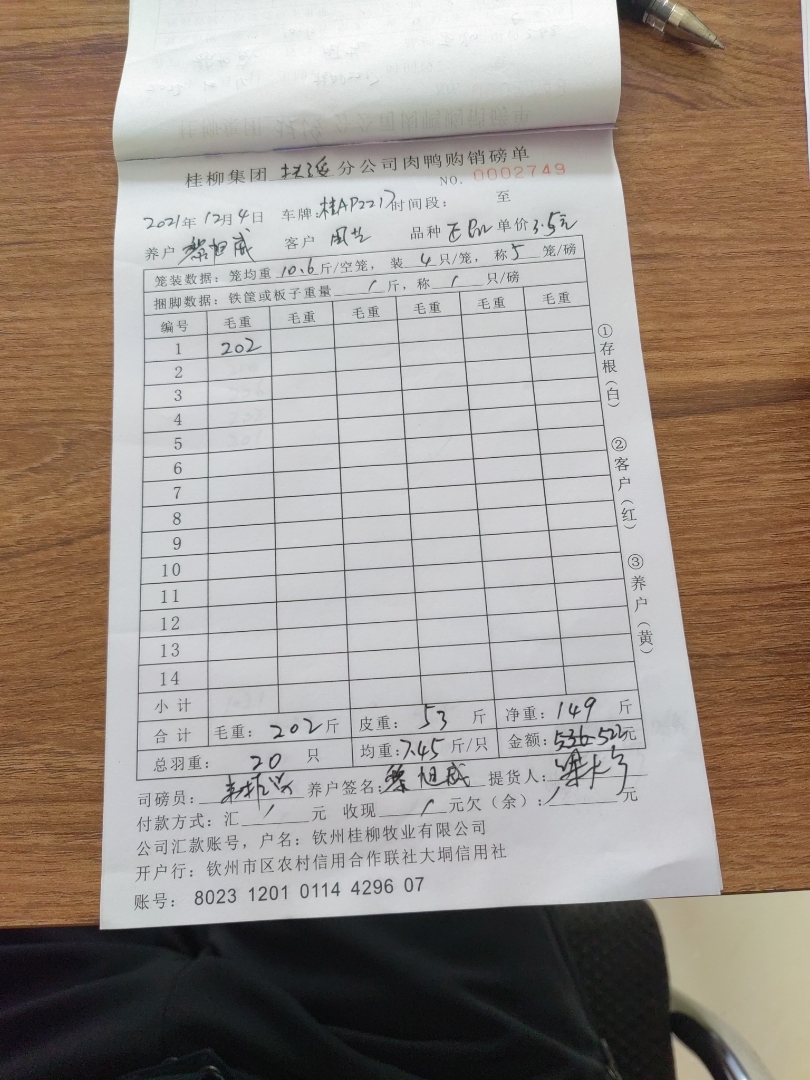 桂柳集团 分公司肉鸭购销磅单
NO. 0002749
2021年12月4日 车牌:桂AP2217 时间段: 至
养户 黎旭威 客户 品种 单价 3.5元
笼装数据: 笼均重 10.6 斤/空笼, 装 4 只/笼, 称 5 笼/磅
捆脚数据: 铁筐或板子重量 / 斤, 称 / 只/磅
编号 毛重 毛重 毛重 毛重 毛重 毛重
1 202
2
3
4
5
6
7
8
9
10
11
12
13
14
小计
合计 毛重: 202斤 皮重: 53 斤 净重: 149 斤
总羽重: 20 只 均重: 7.45 斤/只 金额: 元
司磅员: 养户签名: 黎旭威 提货人:
付款方式: 汇 / 元 收现 / 元欠(余): / 元
公司汇款账号, 户名: 钦州桂柳牧业有限公司
开户行: 钦州市区农村信用合作联社大垌信用社
账号: 8023 1201 0114 4296 07
①存根(白)
②客户(红)
③养户(黄)